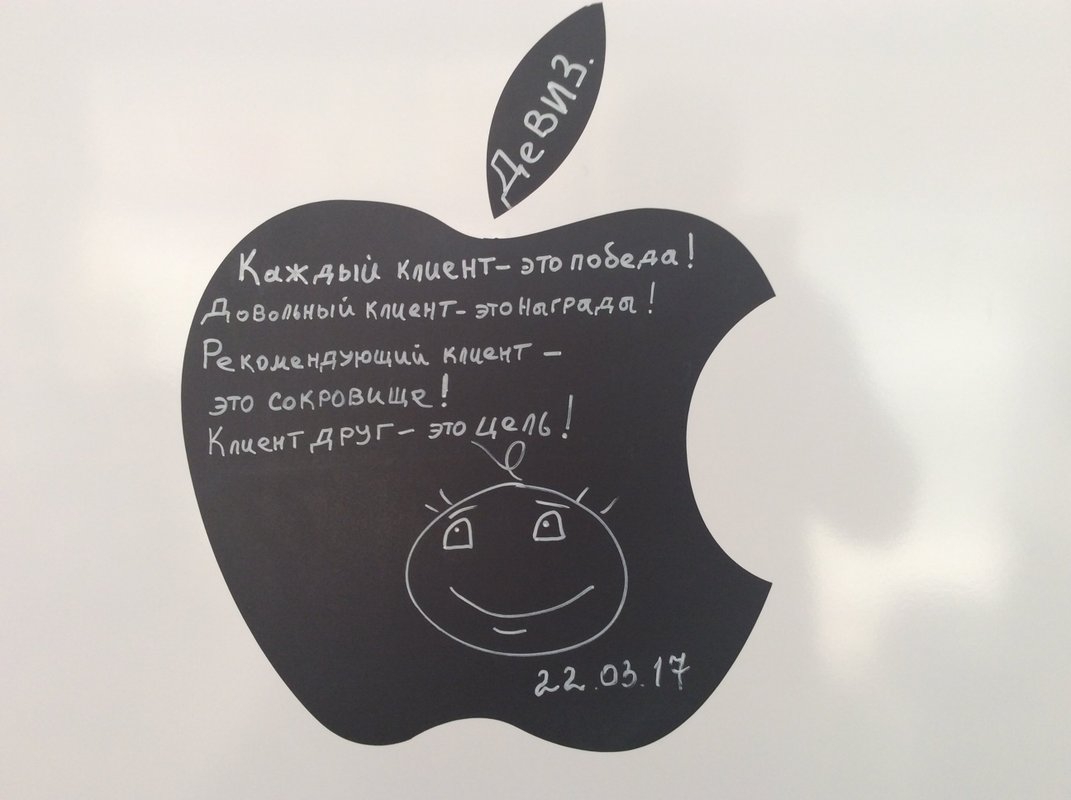 Девиз.
Каждый клиент - это победа!
Довольный клиент - это награды!
Рекомендующий клиент -
это сокровище!
Клиент друг - это цель!
22.03.17